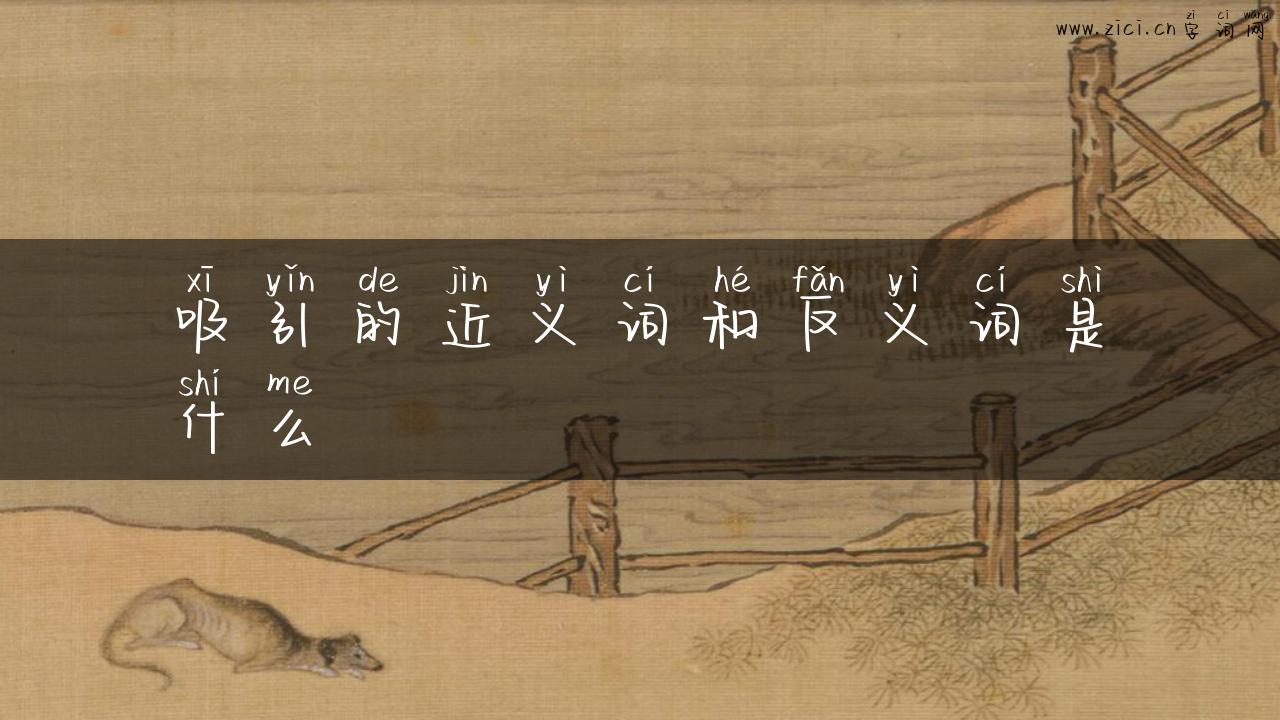 zì cí wǎng
www.zici.cn 字词网
xī yǐn de jìn yì cí hé fǎn yì cí shì
吸引的近义词和反义词是
shí me
什么